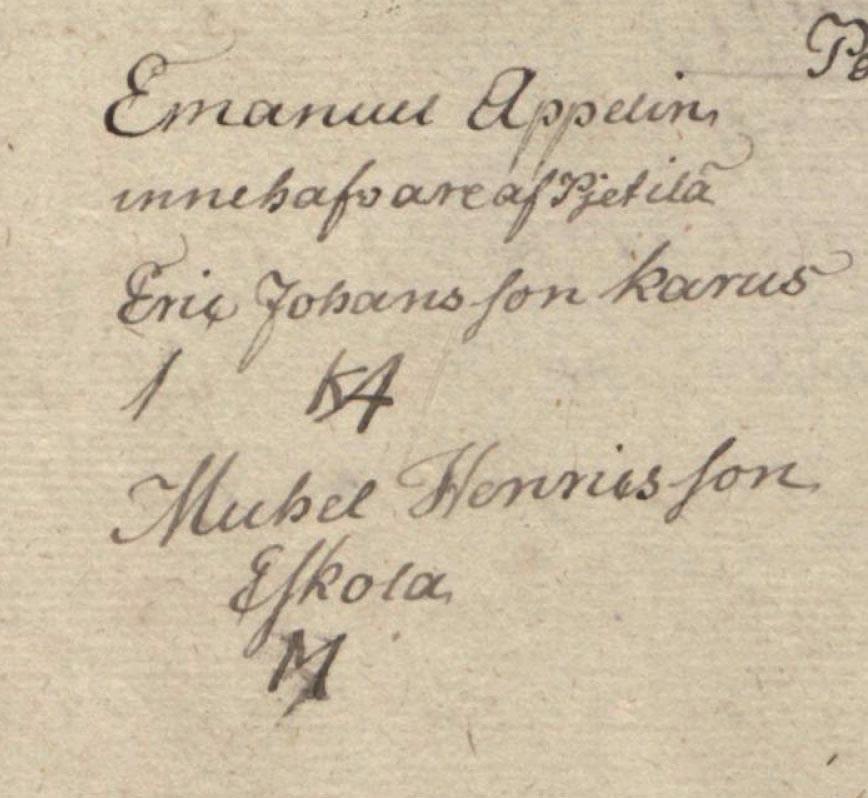 Emanuel Appelin
innehafvare af Pjetilä
Eric Johansson karus
Michel Henricsson
Eskola
M